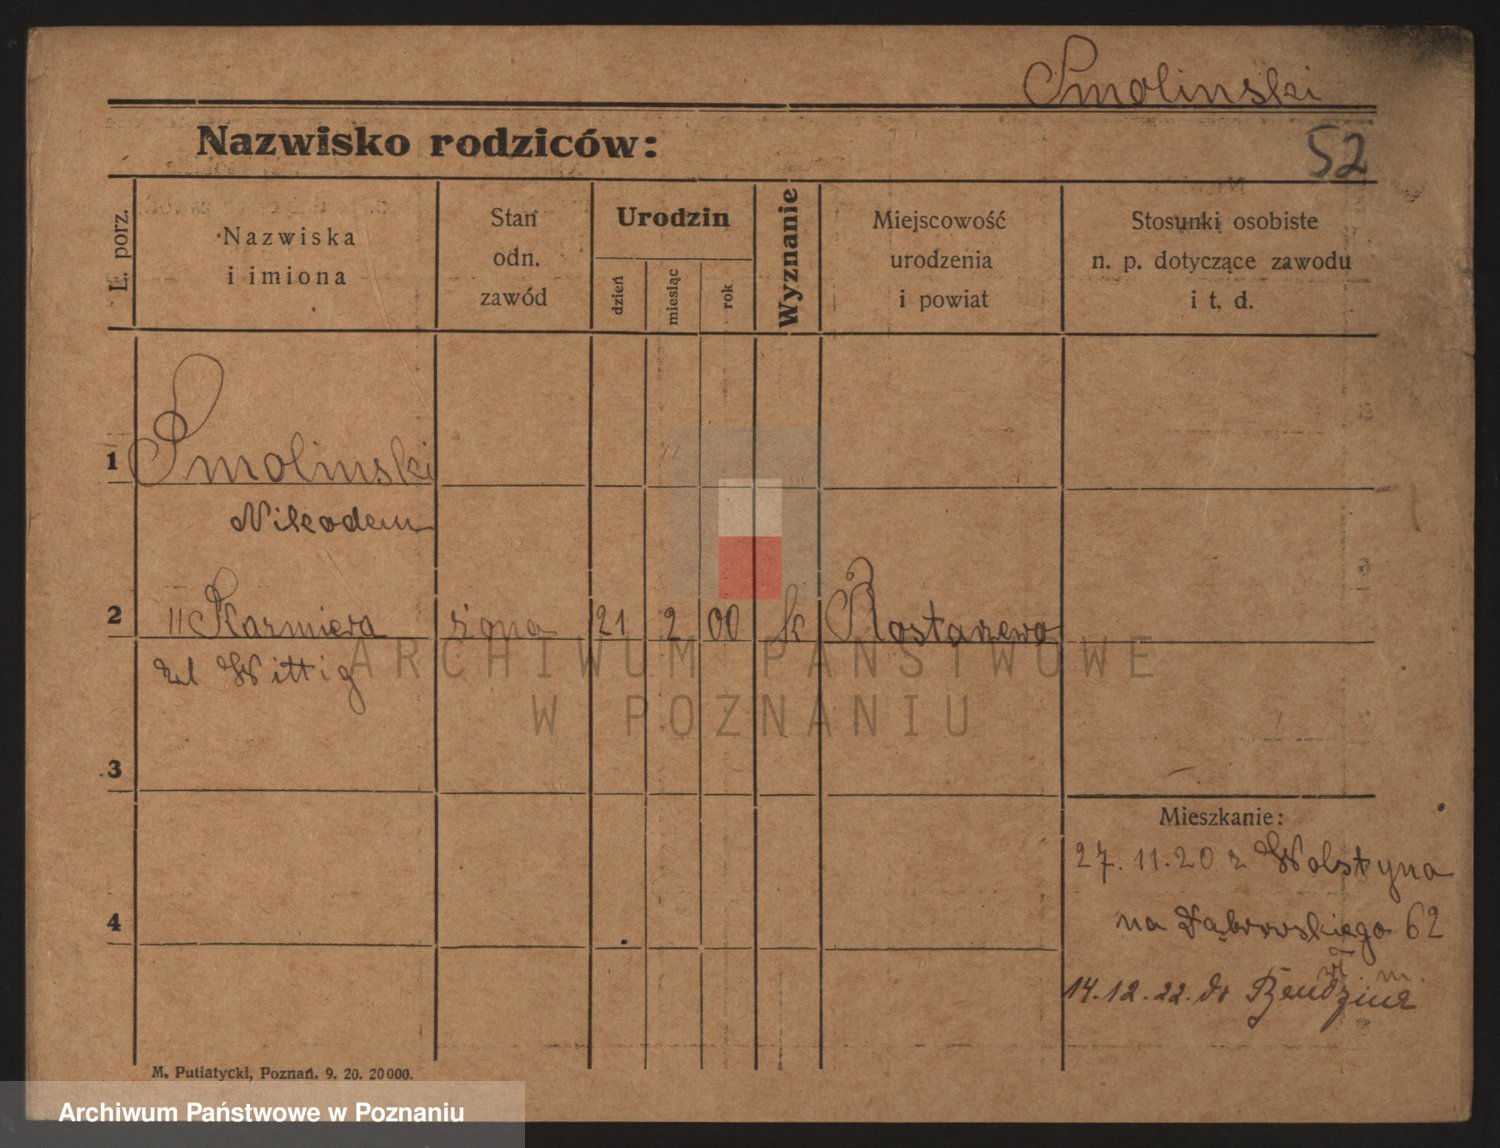 Smolinski
Nazwisko rodziców:
52
L. porz.
Nazwiska
i imiona
Stan
odn.
zawód
Urodzin
dzień
miesiąc
rok
Wyznanie
Miejscowość
urodzenia
i powiat
Stosunki osobiste
n. p. dotyczące zawodu
i t. d.
1
Smolinski
Nikodem
2
" Kazmiera żona 21 2 00 k Rostarzewo
zd Wittig
ARCHIWUM PAŃSTWOWE
W POZNANIU
3
Mieszkanie:
27.11.20 z Wolstyna
4
na Dąbrowskiego 62
14.12.22. do
M. Putiatycki, Poznań. 9. 20. 20000.
Archiwum Państwowe w Poznaniu